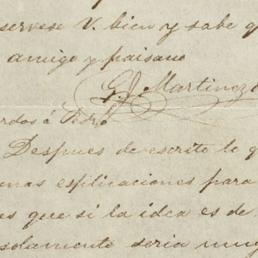 servese V. bien y sabe q
amigo y paisano
G. J. Martinez
rdos á Pedro
Despues de escrito le q
nas esplicaciones para
es que si la idea es de
solamente seria muy